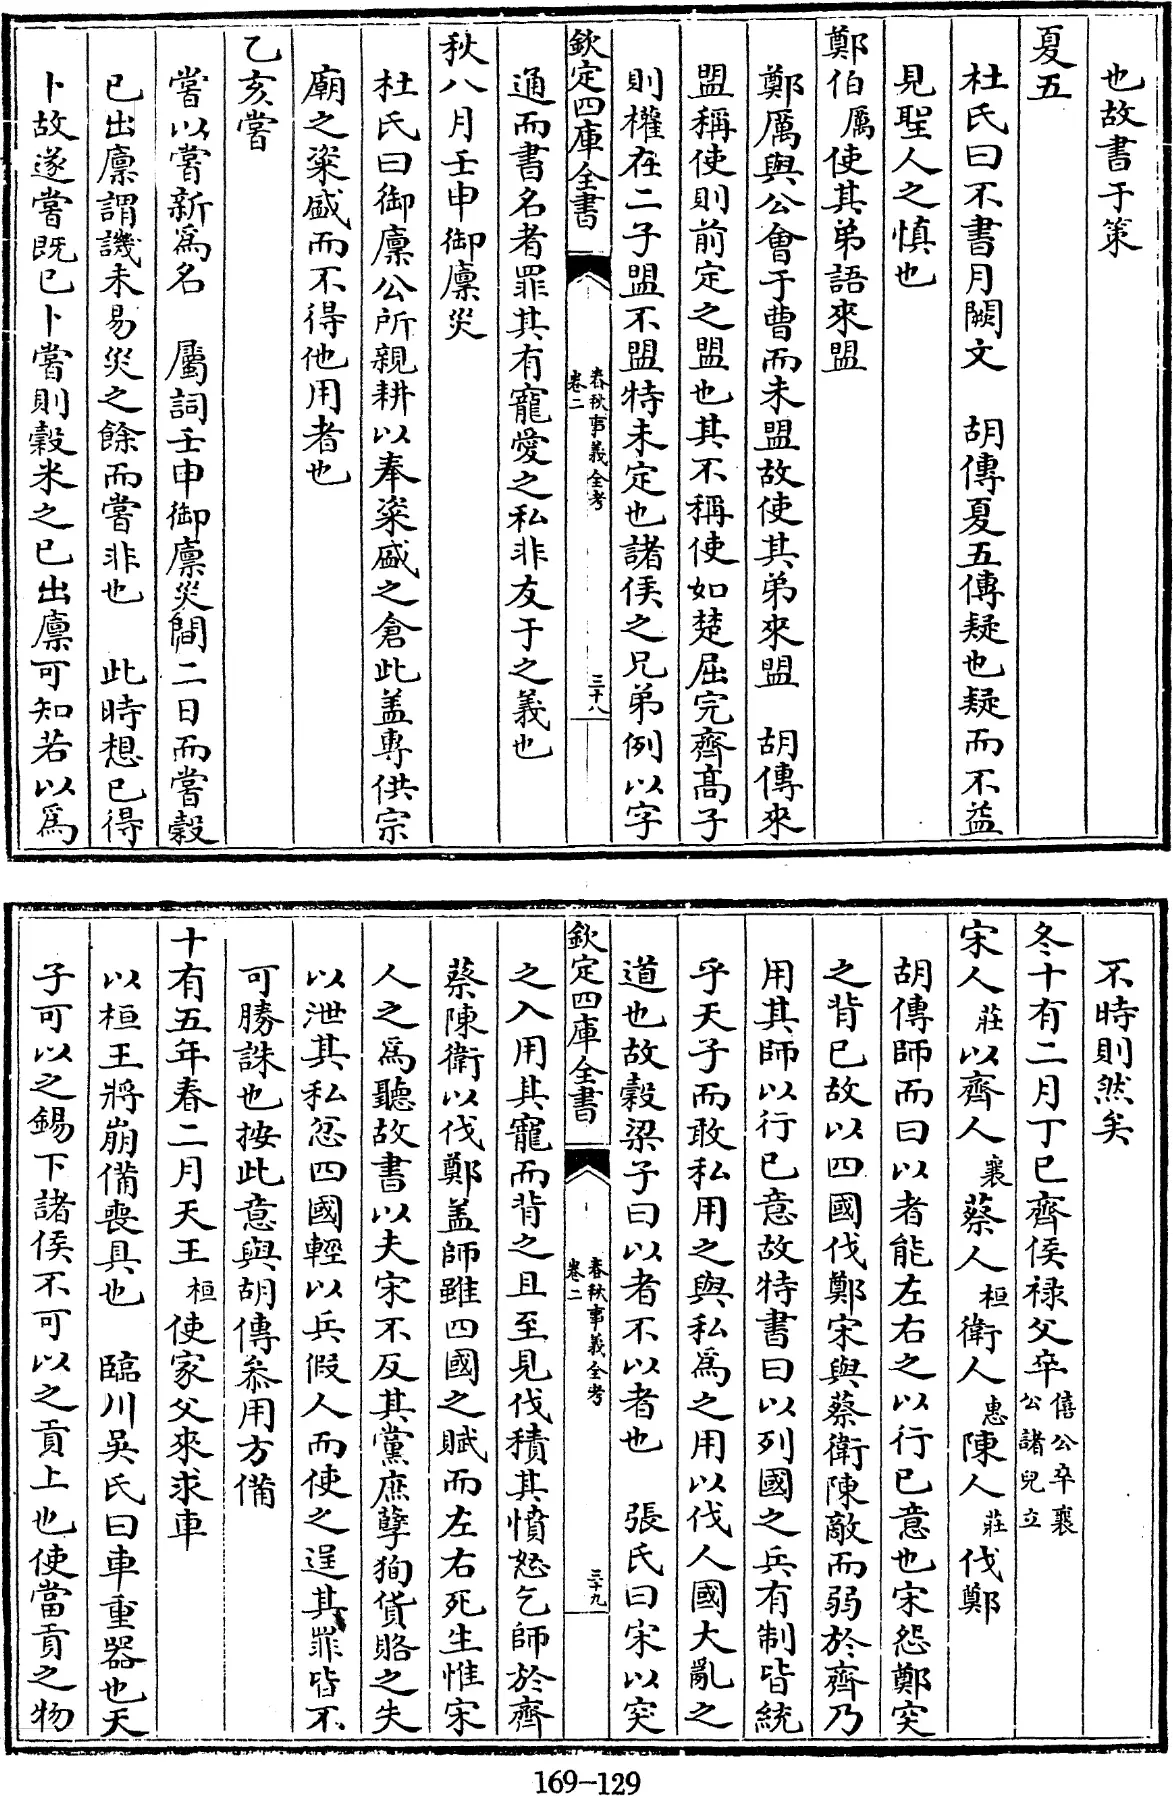 也故書于策
夏五
杜氏曰不書月闕文　胡傳夏五傳疑也疑而不益
見聖人之慎也
鄭伯厲使其弟語來盟
鄭厲與公會于曹而未盟故使其弟來盟　胡傳來
盟稱使則前定之盟也其不稱使如楚屈完齊高子
則權在二子盟不盟特未定也諸侯之兄弟例以字
欽定四庫全書
春秋事義全考
卷二
三十八
通而書名者罪其有寵愛之私非友于之義也
秋八月壬申御廩災
杜氏曰御廩公所親耕以奉粢盛之倉此蓋專供宗
廟之粢盛而不得他用者也
乙亥嘗
嘗以嘗新為名　屬詞壬申御廩災間二日而嘗穀
已出廩謂譏未易災之餘而嘗非也　此時想已得
卜故遂嘗既已卜嘗則穀米之已出廩可知若以為
不時則然矣
冬十有二月丁巳齊侯祿父卒僖公卒襄公諸兒立
宋人莊以齊人襄蔡人桓衛人惠陳人莊伐鄭
胡傳師而曰以者能左右之以行已意也宋怨鄭突
之背已故以四國伐鄭宋與蔡衛陳敵而弱於齊乃
用其師以行已意故特書曰以列國之兵有制皆統
乎天子而敢私用之與私為之用以伐人國大亂之
道也故穀梁子曰以者不以者也　張氏曰宋以突
欽定四庫全書
春秋事義全考
卷二
三十九
之入用其寵而背之且至見伐積其憤怒乞師於齊
蔡陳衛以伐鄭蓋師雖四國之賦而左右死生惟宋
人之為聽故書以夫宋不反其黨庶孽狥貨賂之失
以泄其私忿四國輕以兵假人而使之逞其罪皆不
可勝誅也按此意與胡傳叅用方備
十有五年春二月天王桓使家父來求車
以桓王將崩備喪具也　臨川吳氏曰車重器也天
子可以之錫下諸侯不可以之貢上也使當貢之物
169-129